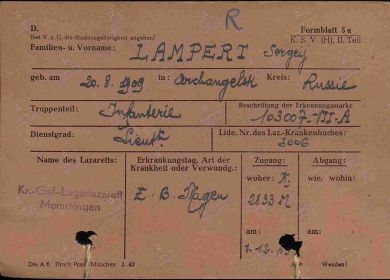 R
D. Formblatt 5 a
(bei V. u. G. die Staatsangehörigkeit angeben) K. S. V. (H), II. Teil
Familien- u. Vorname: LAMPERT Sergej
geb. am 20. 8. 1909 in: Archangelsk Kreis: Russie
Truppenteil: Infanterie Beschriftung der Erkennungsmarke
103007-VII-A
Dienstgrad: Lieut. Lfde. Nr. des Laz.-Krankenbuches:
3006
Name des Lazaretts: Erkrankungstag, Art der Zugang: Abgang:
Krankheit oder Verwundg.: woher: wie, wohin:
Kr.-Gef.-Lagerlazarett Z. B. Magen 2833 M
Memmingen
am: am:
1. 12.
Din A 6 Druck München 2. 43 Wenden!